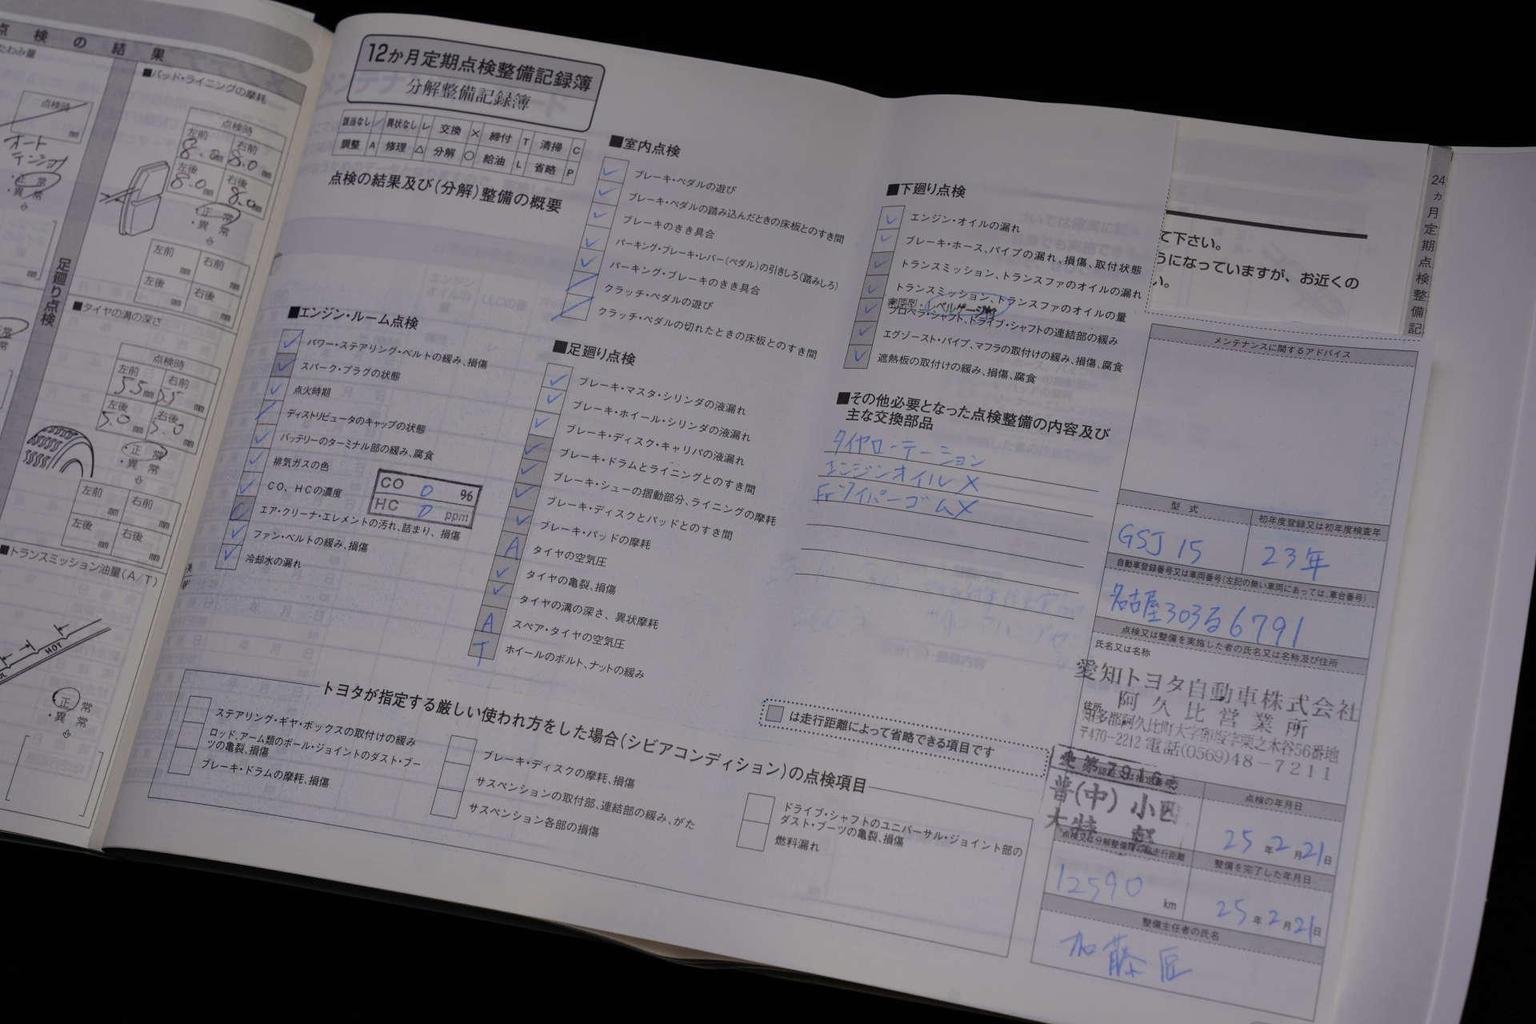 点検の結果
■パッド・ライニングの摩耗
点検時
点検時
左前 右前
8.0 8.0
mm
左後 右後
8.0
オート
テンショナ
正常
・異常
正常
・異常
左前 右前
mm
左後 右後
mm
足廻り点検
■タイヤの溝の深さ
点検時
左前 右前
5.5 mm 5.5
左後 右後
5.0 5.0
正常
・異常
左前 右前
mm
左後 右後
mm
■トランスミッション油量(A/T)
HOT
正常
・異常
12か月定期点検整備記録簿
分解整備記録簿
該当なし / 異状なし レ 交換 × 締付 T 清掃 C
調整 A 修理 △ 分解 ○ 給油 L 省略 P
点検の結果及び(分解)整備の概要
■エンジン・ルーム点検
レ パワー・ステアリング・ベルトの緩み、損傷
レ スパーク・プラグの状態
レ 点火時期
/ ディストリビュータのキャップの状態
レ バッテリーのターミナル部の緩み、腐食
レ 排気ガスの色
レ CO、HCの濃度
CO 0 %
HC 0 ppm
エア・クリーナ・エレメントの汚れ、詰まり、損傷
レ ファン・ベルトの緩み、損傷
レ 冷却水の漏れ
■室内点検
レ ブレーキ・ペダルの遊び
レ ブレーキ・ペダルの踏み込んだときの床板とのすき間
レ ブレーキのきき具合
レ パーキング・ブレーキ・レバー(ペダル)の引きしろ(踏みしろ)
レ パーキング・ブレーキのきき具合
/ クラッチ・ペダルの遊び
/ クラッチ・ペダルの切れたときの床板とのすき間
■足廻り点検
レ ブレーキ・マスタ・シリンダの液漏れ
レ ブレーキ・ホイール・シリンダの液漏れ
レ ブレーキ・ディスク・キャリパの液漏れ
レ ブレーキ・ドラムとライニングとのすき間
レ ブレーキ・シューの摺動部分、ライニングの摩耗
レ ブレーキ・ディスクとパッドとのすき間
レ ブレーキ・パッドの摩耗
A タイヤの空気圧
レ タイヤの亀裂、損傷
レ タイヤの溝の深さ、異状摩耗
A スペア・タイヤの空気圧
T ホイールのボルト、ナットの緩み
■下廻り点検
レ エンジン・オイルの漏れ
レ ブレーキ・ホース、パイプの漏れ、損傷、取付状態
レ トランスミッション、トランスファのオイルの漏れ
レ トランスミッション、トランスファのオイルの量
レ プロペラ・シャフト、ドライブ・シャフトの連結部の緩み
レ エグゾースト・パイプ、マフラの取付けの緩み、損傷、腐食
レ 遮熱板の取付けの緩み、損傷、腐食
■その他必要となった点検整備の内容及び
主な交換部品
タイヤローテーション
エンジンオイル ×
Frワイパーゴム×
は走行距離によって省略できる項目です
トヨタが指定する厳しい使われ方をした場合(シビアコンディション)の点検項目
ステアリング・ギヤ・ボックスの取付けの緩み
ロッド、アーム類のボール・ジョイントのダスト・ブー
ツの亀裂、損傷
ブレーキ・ドラムの摩耗、損傷
ブレーキ・ディスクの摩耗、損傷
サスペンションの取付部、連結部の緩み、がた
サスペンション各部の損傷
ドライブ・シャフトのユニバーサル・ジョイント部の
ダスト・ブーツの亀裂、損傷
燃料漏れ
て下さい。
うになっていますが、お近くの
い。
24か月定期点検整備記
メンテナンスに関するアドバイス
型式 初年度登録又は初年度検査年
GSJ 15 23年
自動車登録番号又は車両番号(左記の無い車両にあっては、車台番号)
名古屋303る6791
点検又は整備を実施した者の氏名又は名称及び住所
氏名又は名称
愛知トヨタ自動車株式会社
阿久比営業所
知多郡阿久比町大字卯坂字栗之木谷56番地
〒470-2212 電話(0569)48-7211
普(中) 小四
大特 軽
点検の年月日
25年2月21日
12590 km
整備を完了した年月日
25年2月21日
整備主任者の氏名
加藤 匠